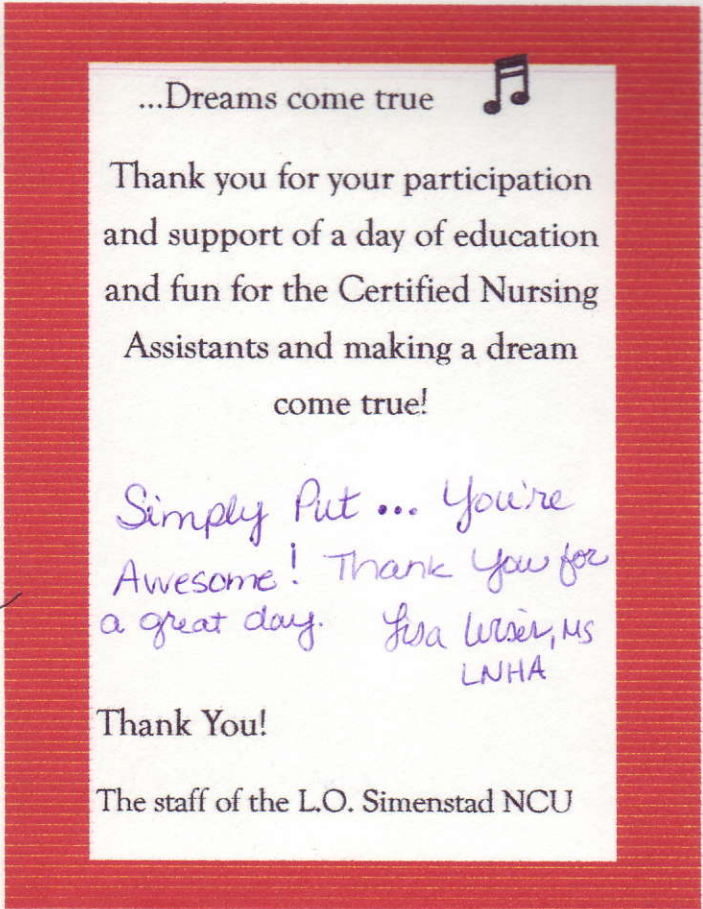 ...Dreams come true
Thank you for your participation
and support of a day of education
and fun for the Certified Nursing
Assistants and making a dream
come true!
Simply Put ... You're
Awesome! Thank You for
a great day. Lisa
MS
LNHA
Thank You!
The staff of the L.O. Simenstad NCU